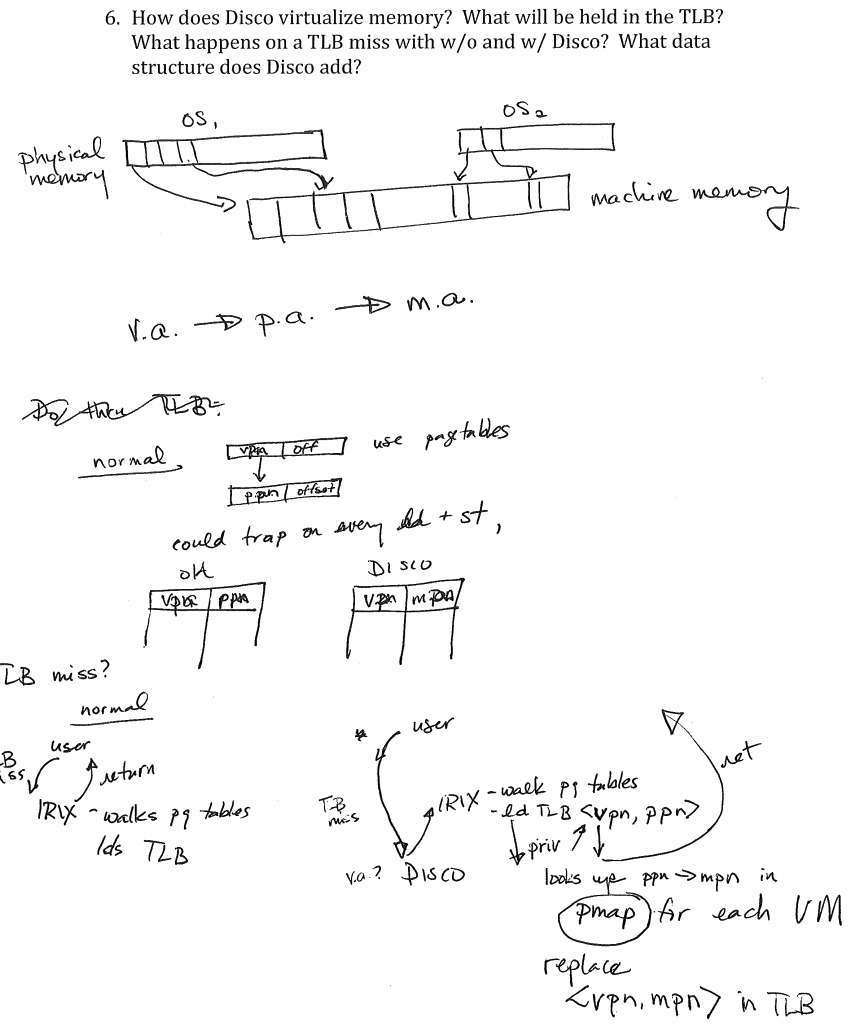 6. How does Disco virtualize memory? What will be held in the TLB?
What happens on a TLB miss with w/o and w/ Disco? What data
structure does Disco add?
OS1
OS2
physical
memory
machine memory
v.a. → p.a. → m.a.
thru TLB:
normal,
vpn off
use pagetables
ppn offset
could trap on every ld + st,
DISCO
vpn ppn
vpn mpn
TLB miss?
normal
user
return
IRIX - walks pg tables
lds TLB
*
user
TLB
miss
v.a.? DISCO
IRIX - walk pg tables
- ld TLB <vpn, ppn>
priv
ret
looks up ppn → mpn in
pmap for each VM
replace
<vpn, mpn> in TLB